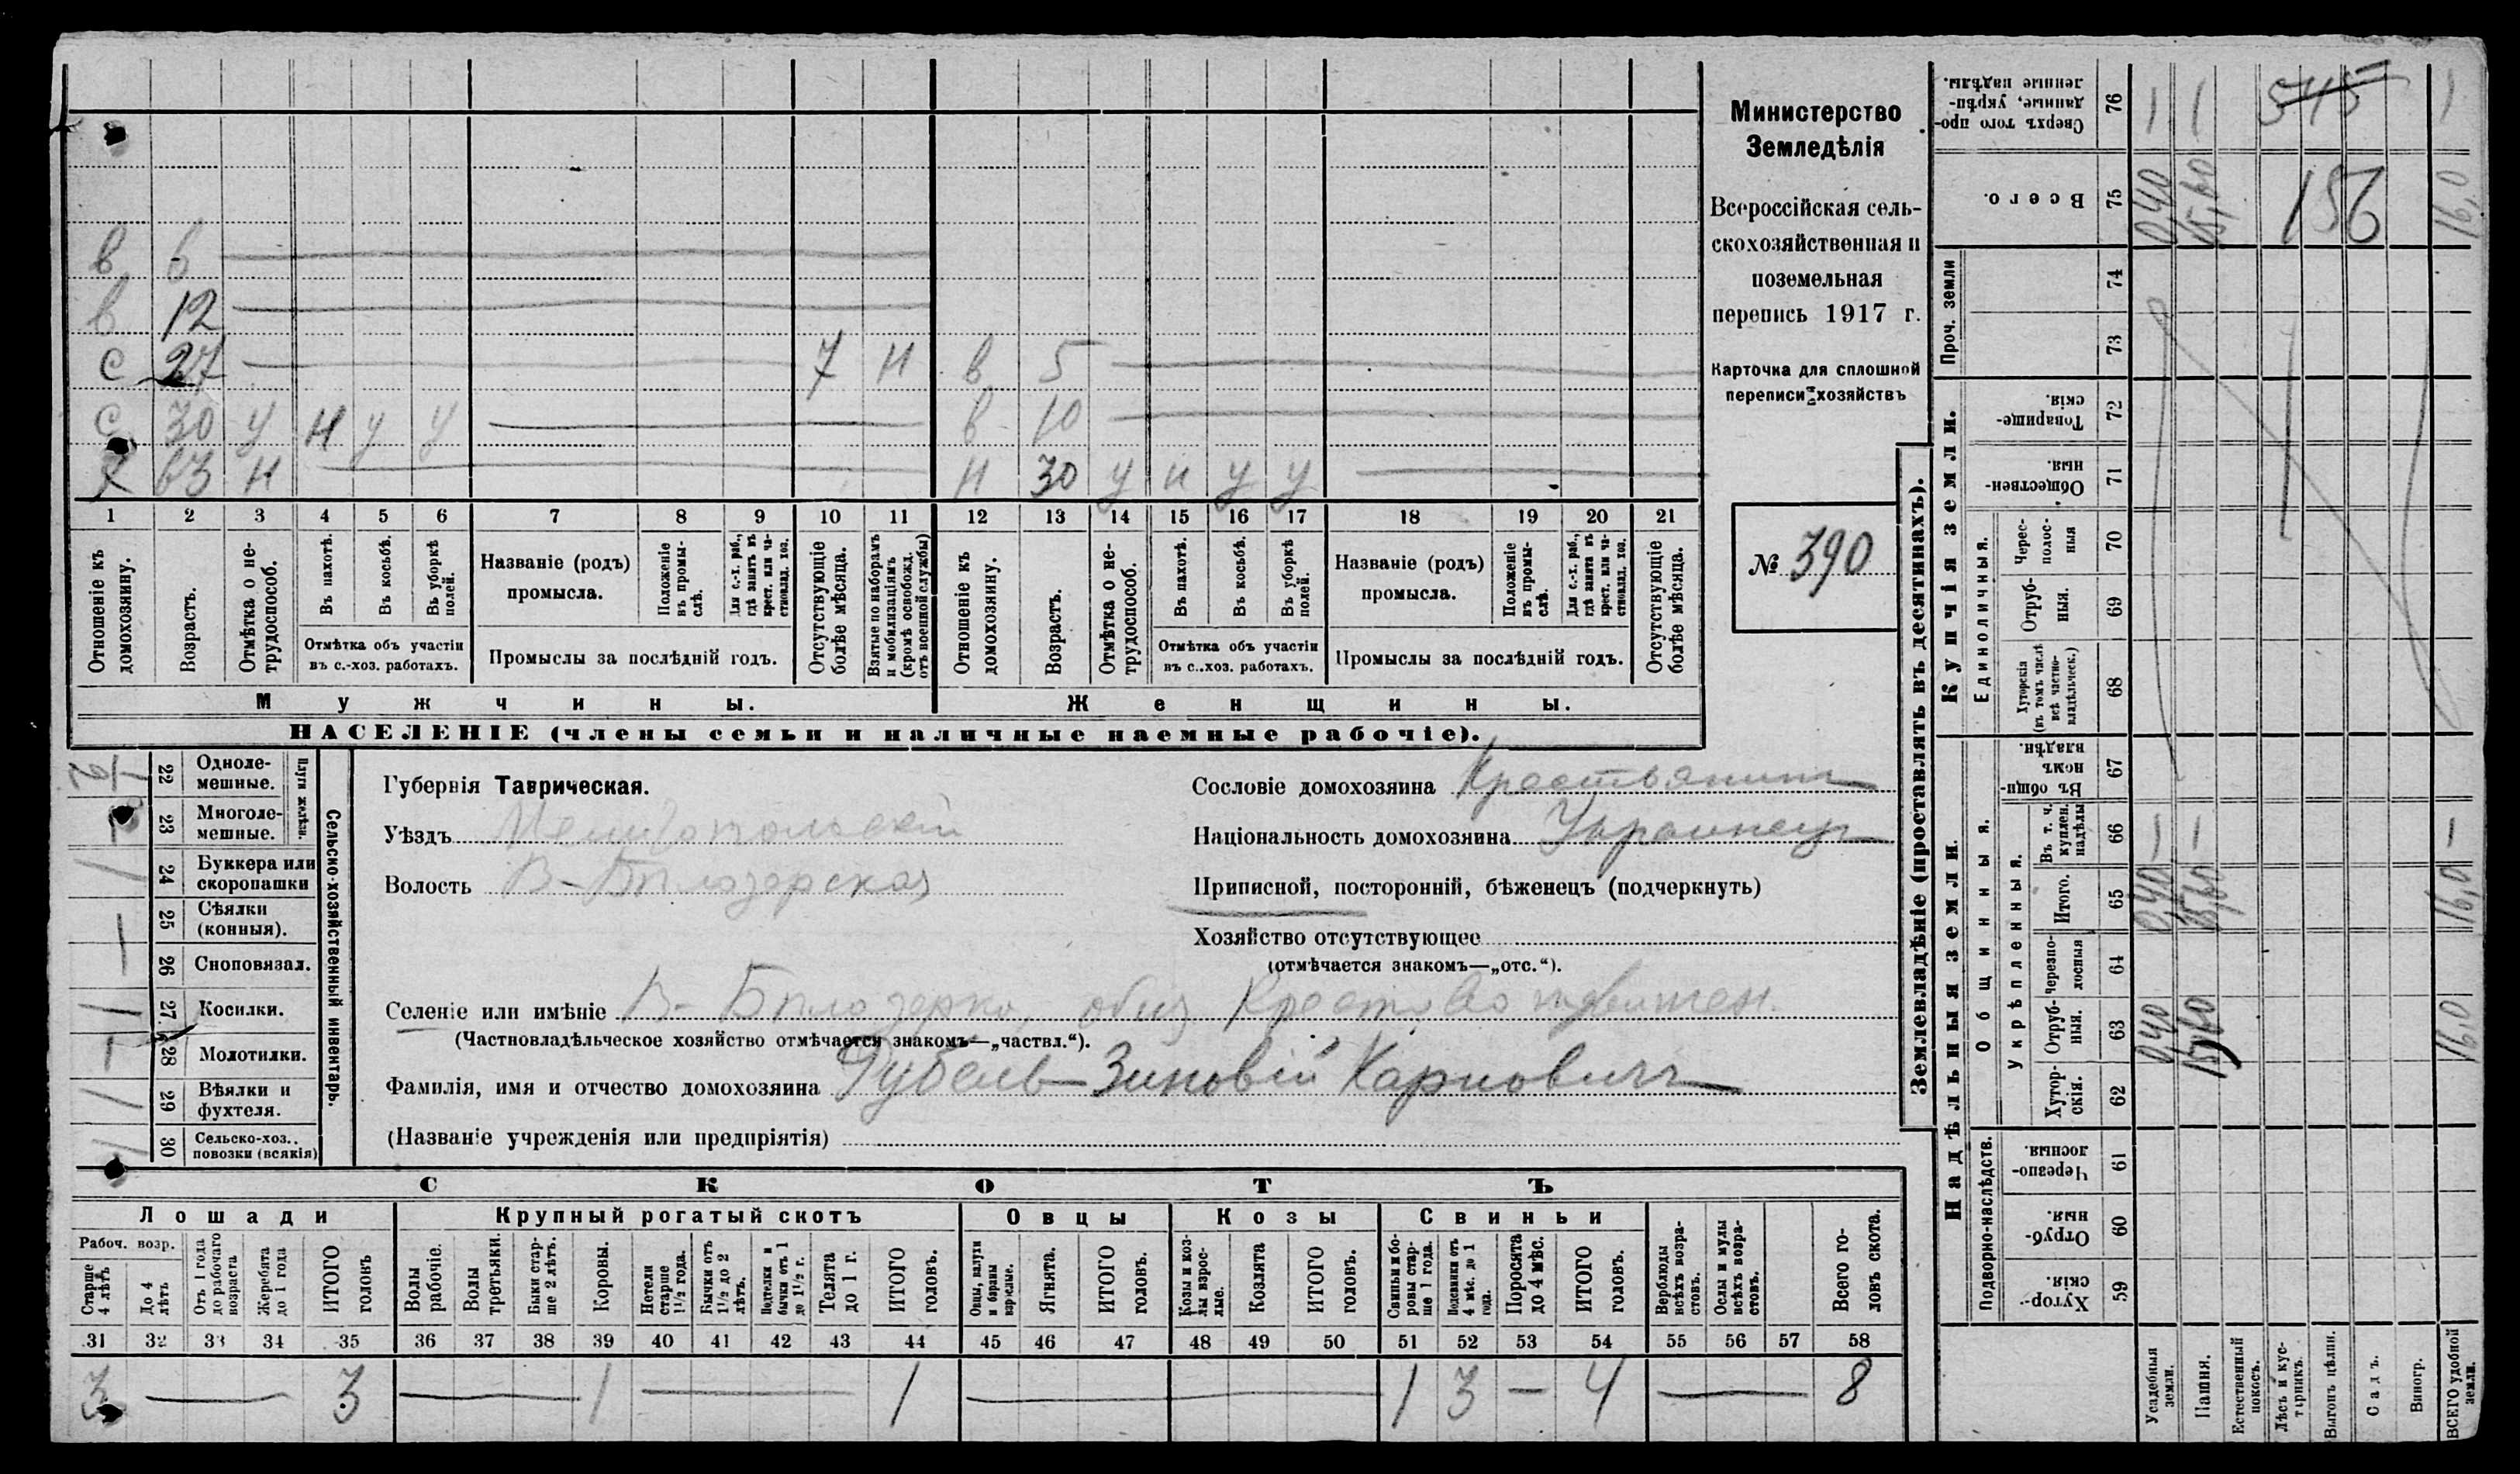 Министерство
Земледѣлія
Всероссійская сель-
скохозяйственная и
поземельная
перепись 1917 г.
Карточка для сплошной
переписи хозяйствъ
№ 390
в 6
в 12
с 27 7 н в 5
с 30 у н у у в 10
х 63 н н 30 у н у у
1 2 3 4 5 6 7 8 9 10 11 12 13 14 15 16 17 18 19 20 21
Отношеніе къ домохозяину.
Возрастъ.
Отмѣтка о не-трудоспособ.
Въ пахотѣ.
Въ косьбѣ.
Въ уборкѣ полей.
Отмѣтка объ участіи
въ с.-хоз. работахъ.
Названіе (родъ)
промысла.
Положеніе въ промы-слѣ.
Для с.-х. раб., гдѣ занятъ въ крест. или ча-стновлад. хоз.
Промыслы за послѣдній годъ.
Отсутствующіе болѣе мѣсяца.
Взятые по наборамъ и мобилизаціямъ (кромѣ освобожд. отъ военной службы)
Отношеніе къ домохозяину.
Возрастъ.
Отмѣтка о не-трудоспособ.
Въ пахотѣ.
Въ косьбѣ.
Въ уборкѣ полей.
Отмѣтка объ участіи
въ с..хоз. работахъ.
Названіе (родъ)
промысла.
Положеніе въ промы-слѣ.
Для с.-х. раб., гдѣ занята въ крест. или ча-стновлад. хоз.
Промыслы за послѣдній годъ.
Отсутствующіе болѣе мѣсяца.
Мужчины. Женщины.
НАСЕЛЕНІЕ (члены семьи и наличные наемные рабочіе).
22 Одноле-мешные.
23 Многоле-мешные.
Плуги желѣзн.
24 Буккера или скоропашки
25 Сѣялки (конныя).
26 Сноповязал.
27 Косилки.
28 Молотилки.
29 Вѣялки и фухтеля.
30 Сельско-хоз.. повозки (всякія)
Сельско-хозяйственный инвентарь.
Губернія Таврическая.
Уѣздъ Мелитопольскій
Волость В-Бѣлозерская
Сословіе домохозяина Крестьянинъ
Національность домохозяина Украинецъ
Приписной, посторонній, бѣженецъ (подчеркнуть)
Хозяйство отсутствующее
(отмѣчается знакомъ—„отс.“).
Селеніе или имѣніе В-Бѣлозерка, общ Крестовоздвижен.
(Частновладѣльческое хозяйство отмѣчается знакомъ—„частвл.“).
Фамилія, имя и отчество домохозяина Зиновій Карповичъ
(Названіе учрежденія или предпріятія)
СКОТЪ
Лошади Крупный рогатый скотъ Овцы Козы Свиньи
Рабоч. возр.
Старше 4 лѣтъ
До 4 лѣтъ
Отъ 1 года до рабочаго возраста
Жеребята до 1 года
ИТОГО головъ
Волы рабочіе.
Волы третьяки.
Быки стар-ше 2 лѣтъ.
Коровы.
Нетели старше 1½ года.
Бычки отъ 1½ до 2 лѣтъ.
Подтелки и бычки отъ 1 до 1½ г.
Телята до 1 г.
ИТОГО головъ.
Овцы, валухи и бараны взрослые.
Ягнята.
ИТОГО головъ.
Козы и коз-лы взрос-лые.
Козлята
ИТОГО головъ.
Свиньи и бо-ровы стар-ше 1 года.
Подсвинки отъ 4 мѣс. до 1 года.
Поросята до 4 мѣс.
ИТОГО головъ.
Верблюды всѣхъ возра-стовъ.
Ослы и мулы всѣхъ возра-стовъ.
Всего го-ловъ скота.
31 32 33 34 35 36 37 38 39 40 41 42 43 44 45 46 47 48 49 50 51 52 53 54 55 56 57 58
3 — 3 — 1 — 1 — 1 3 — 4 — 8
Землевладѣніе (проставлять въ десятинахъ).
Надѣльныя земли.
Купчія земли.
Проч. земли
Подворно-наслѣдств.
Общинныя.
Укрѣпленныя.
Единоличныя.
Сверхъ того про-данные, укрѣп-ленные надѣлы. 76 545 1
Всего. 75 0,40 15,60 156 16,0
74
73
Товарище-скія. 72
Обществен-ныя. 71
Черес-полос-ныя 70
Отруб-ныя. 69
Хуторскія (въ томъ числѣ всѣ частно-владѣльческ.) 68
Въ общи-номъ владѣн. 67
Въ т. ч. куплен. надѣлы 66 — — —
Итого. 65 0,40 15,60 16,0
Черезпо-лосныя 64
Отруб-ныя. 63 0,40 15,60 16,0
Хутор-скія. 62
Черезпо-лосныя. 61
Отруб-ныя. 60
Хутор-скія. 59
Усадебныя земли.
Пашня.
Естественный покосъ.
Лѣсъ и кус-тарникъ.
Выгонъ цѣлин.
Садъ.
Виногр.
ВСЕГО удобной земли.